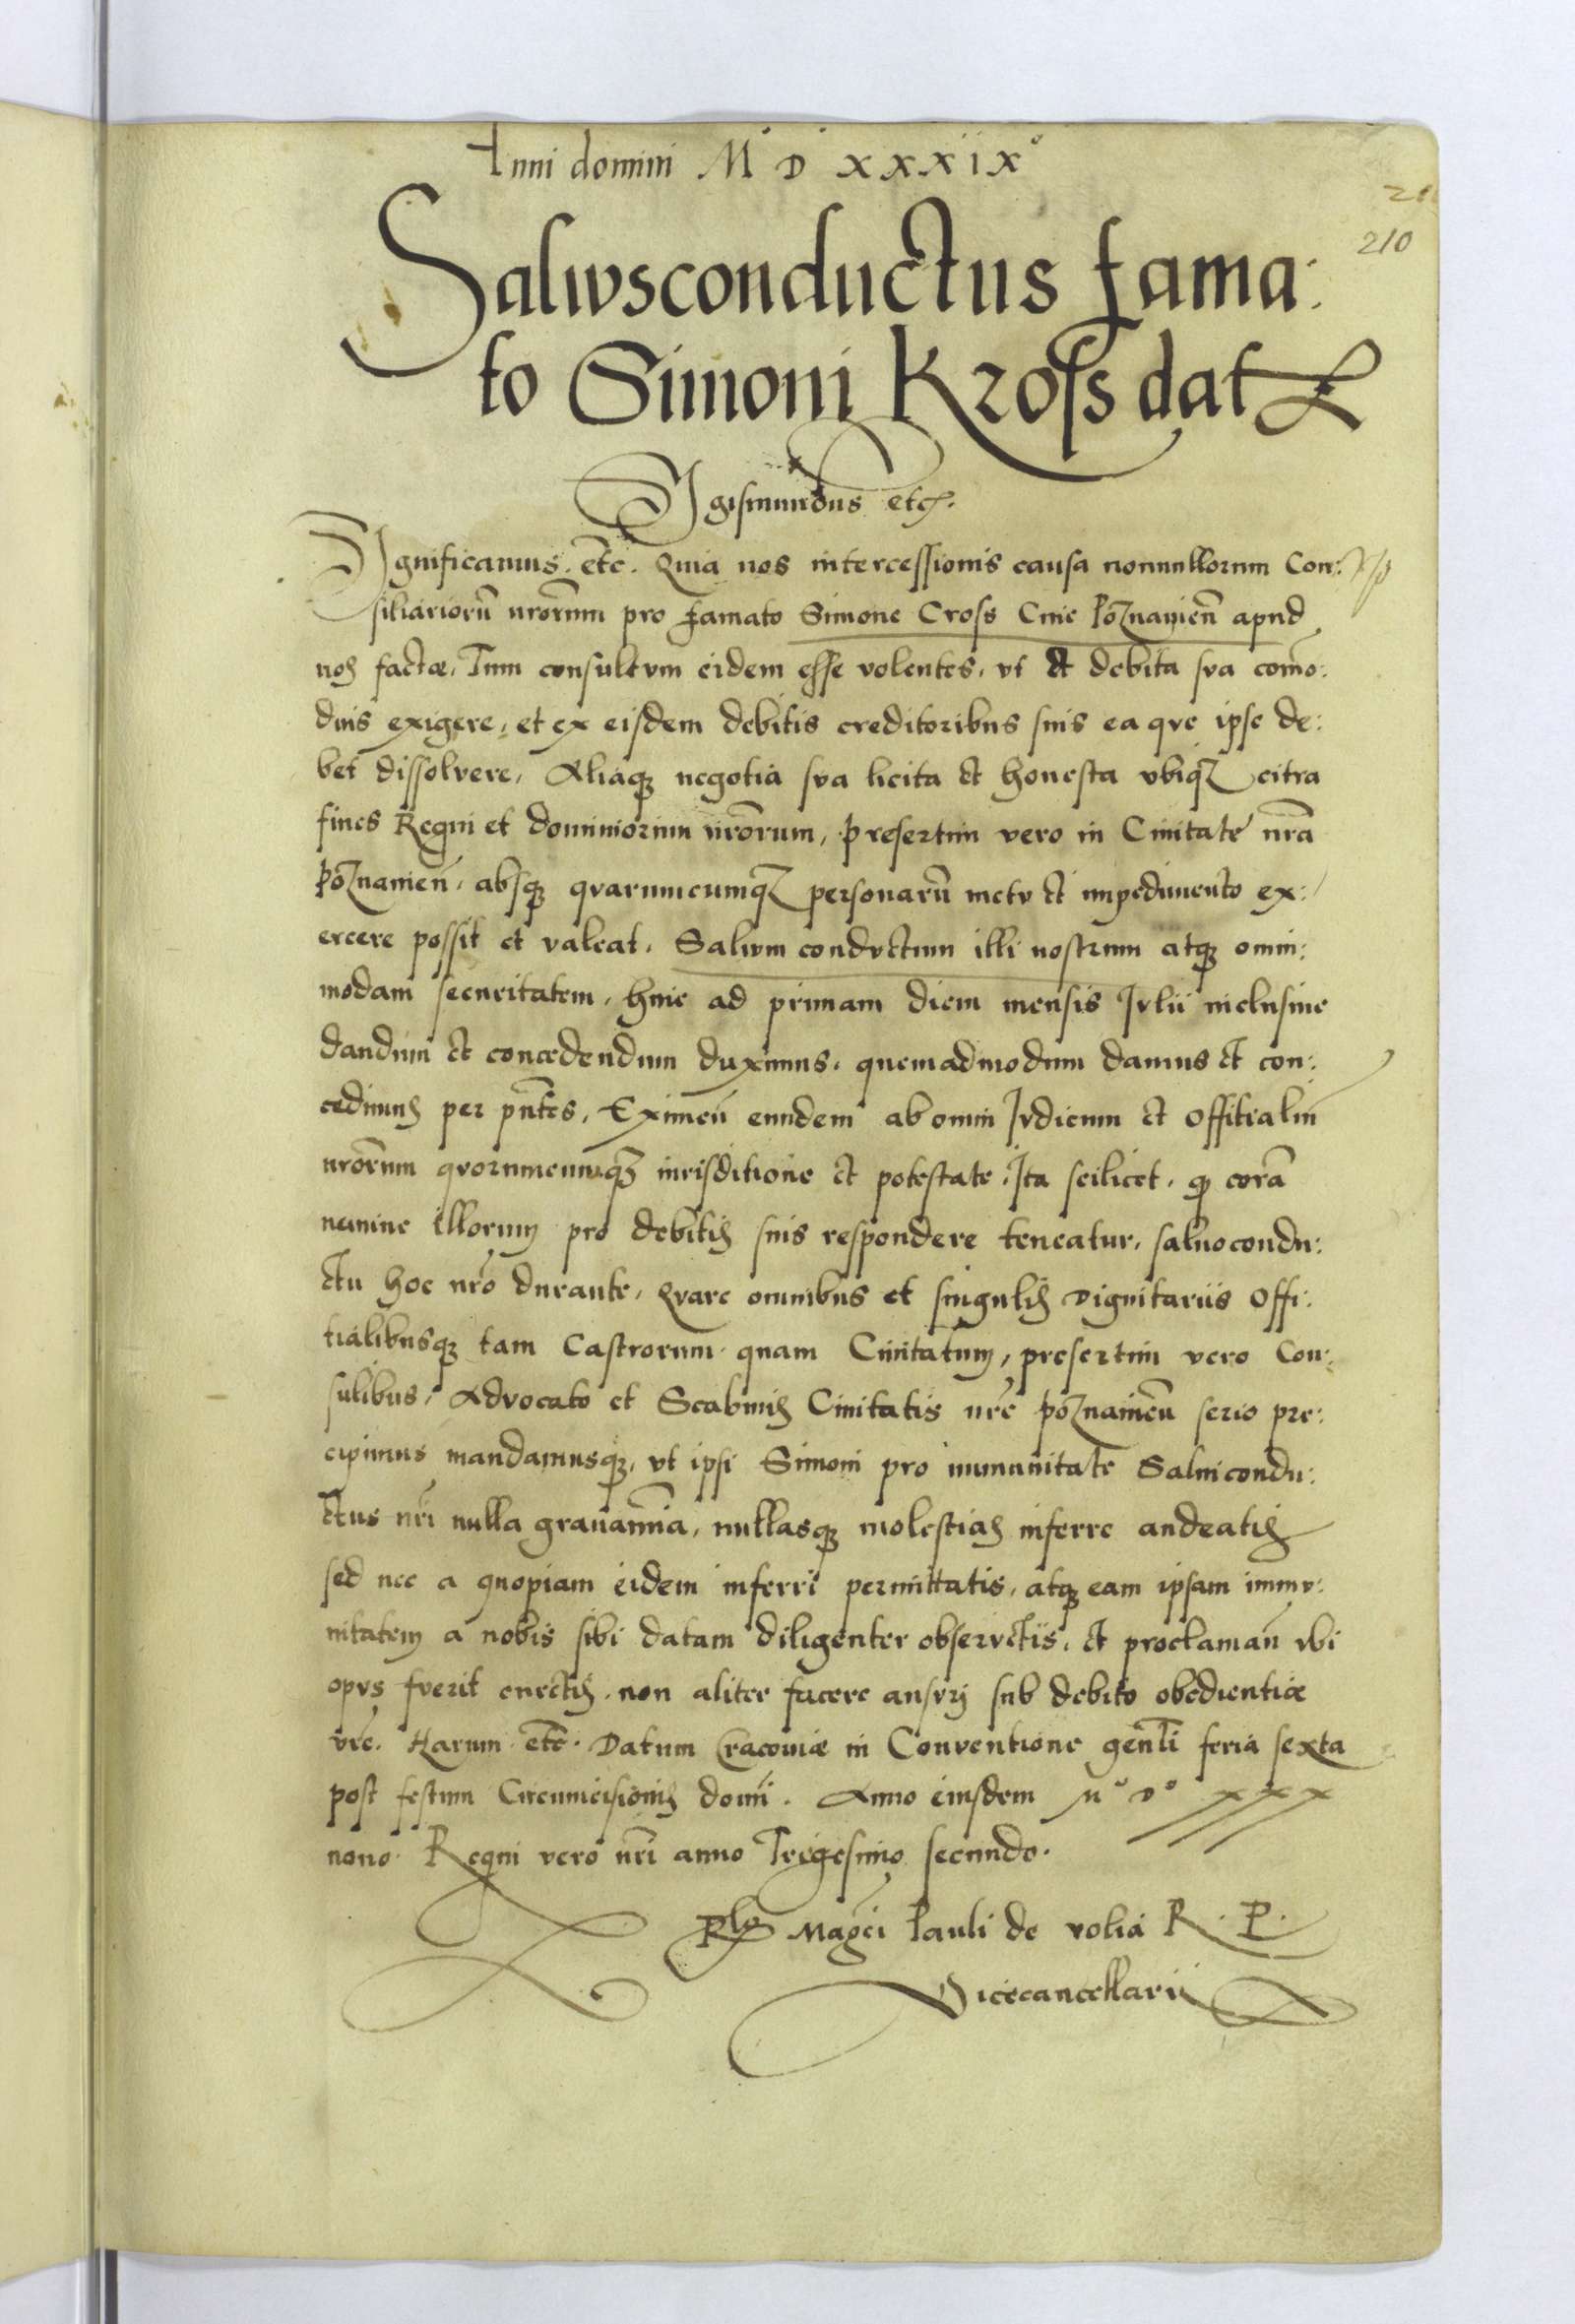 Anni domini M° D XXXIX°
210
Salwsconductus fama:
to Simoni Kross dat
Sigismundus etc.
Significamus. etc. Quia nos intercessionis causa nonnullorum Con:
siliariorū nrōrum pro famato Simone Cross Ciue Poznanieñ apud
nos factæ, Tum consultvm eidem esse volentes, vt et debita sva com̄o:
dius exigere, et ex eisdem debitis creditoribus suis ea qve ipse de:
bet dissolvere, Aliaqꝫ negotia sva licita et honesta vbiqꝫ citra
fines Regni et dominiorum nrōrum, presertim vero in Ciuitate nrā
Poznanieñ, absqꝫ qvarumcumqꝫ personarū metv et impedimento ex:
ercere possit et valeat, Salwm condvctum illi nostrum atqꝫ omni:
modam securitatem, hinc ad primam diem mensis Jvlii inclusiue
dandum et concedendum duximus, quemadmodum damus et con:
cedimus per pn̄tes, Eximeñ eundem ab omni Jvdicum et Offitialiū
nrōrum qvorumcumqꝫ iurisditione et potestate, Ita scilicet, qꝫ corā
nemine illorum pro debitis suis respondere teneatur, saluocondu:
ctu hoc nrō durante, Qvare omnibus et singulis Dignitariis Offi:
tialibusqꝫ tam Castrorum quam Ciuitatum, presertim vero Con:
sulibus, Advocato et Scabinis Ciuitatis nrē Poznanieñ serio pre:
cipimus mandamusqꝫ, vt ipsi Simoni pro immunitate Saluicondu:
ctus nrī nulla grauamīa, nullasqꝫ molestias inferre audeatis
sed nec a quopiam eidem inferri permittatis, atqꝫ eam ipsam immv:
nitatem a nobis sibi datam diligenter observetis, et proclamañ vbi
opvs fverit curetis, non aliter facere ausvri sub debito obedientiæ
vrē. Harum etc. Datum Cracoviæ in Conventione gen̄li feria sexta
post festum Circumcisionis domī. Anno eiusdem M° D° XXX
nono. Regni vero nrī anno Trigesimo secundo.
Rlō Magci Pauli de volia R. P.
Vicecancellarii